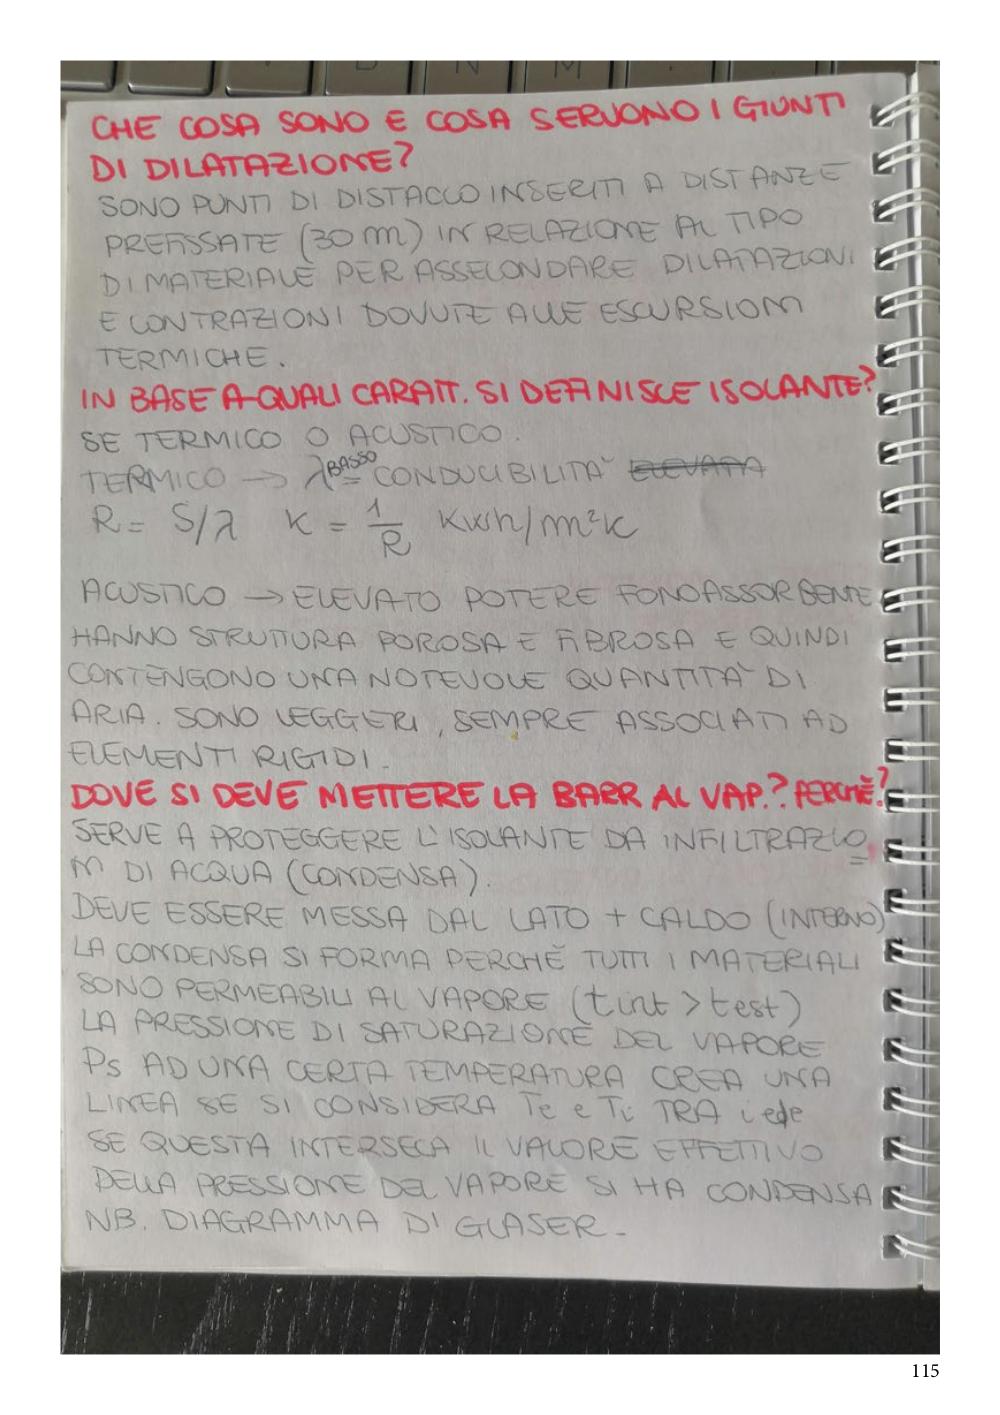 CHE COSA SONO E COSA SERVONO I GIUNTI
DI DILATAZIONE?
SONO PUNTI DI DISTACCO INSERITI A DISTANZE
PREFISSATE (30 m) IN RELAZIONE AL TIPO
DI MATERIALE PER ASSECONDARE DILATAZIONI
E CONTRAZIONI DOVUTE ALLE ESCURSIONI
TERMICHE.
IN BASE A QUALI CARATT. SI DEFINISCE ISOLANTE?
SE TERMICO O ACUSTICO.
TERMICO → λ BASSO = CONDUCIBILITA' ELEVATA
R = S/λ K = 1/R Kwh/m²K
ACUSTICO → ELEVATO POTERE FONOASSORBENTE
HANNO STRUTTURA POROSA E FIBROSA E QUINDI
CONTENGONO UNA NOTEVOLE QUANTITA' DI
ARIA. SONO LEGGERI, SEMPRE ASSOCIATI AD
ELEMENTI RIGIDI.
DOVE SI DEVE METTERE LA BARR AL VAP.? PERCHÈ?
SERVE A PROTEGGERE L'ISOLANTE DA INFILTRAZIO=
NI DI ACQUA (CONDENSA).
DEVE ESSERE MESSA DAL LATO + CALDO (INTERNO)
LA CONDENSA SI FORMA PERCHÈ TUTTI I MATERIALI
SONO PERMEABILI AL VAPORE (tint > test)
LA PRESSIONE DI SATURAZIONE DEL VAPORE
Ps AD UNA CERTA TEMPERATURA CREA UNA
LINEA SE SI CONSIDERA Te e Ti TRA i ed e
SE QUESTA INTERSECA IL VALORE EFFETTIVO
DELLA PRESSIONE DEL VAPORE SI HA CONDENSA
NB. DIAGRAMMA DI GLASER.
115